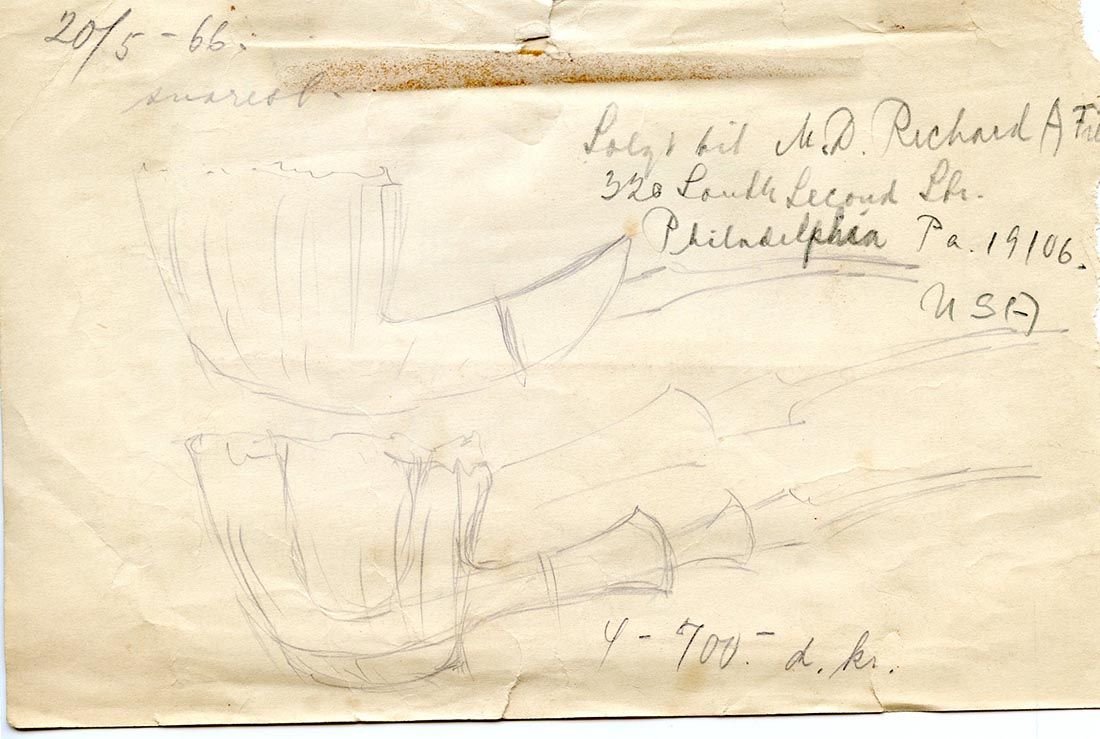 20/5 - 66.
snarest.
Solgt til M.D. Richard A
320 South Second Str.
Philadelphia Pa. 19106.
USA
4 - 700.- d. kr.